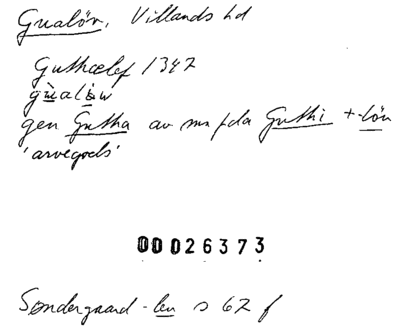 Gualöv, Villands hd
Guthælef 1347
gen Gutha av mn fda Guthi + -löv
'arvegods'
00026373
Søndergaard -lev s 62 f